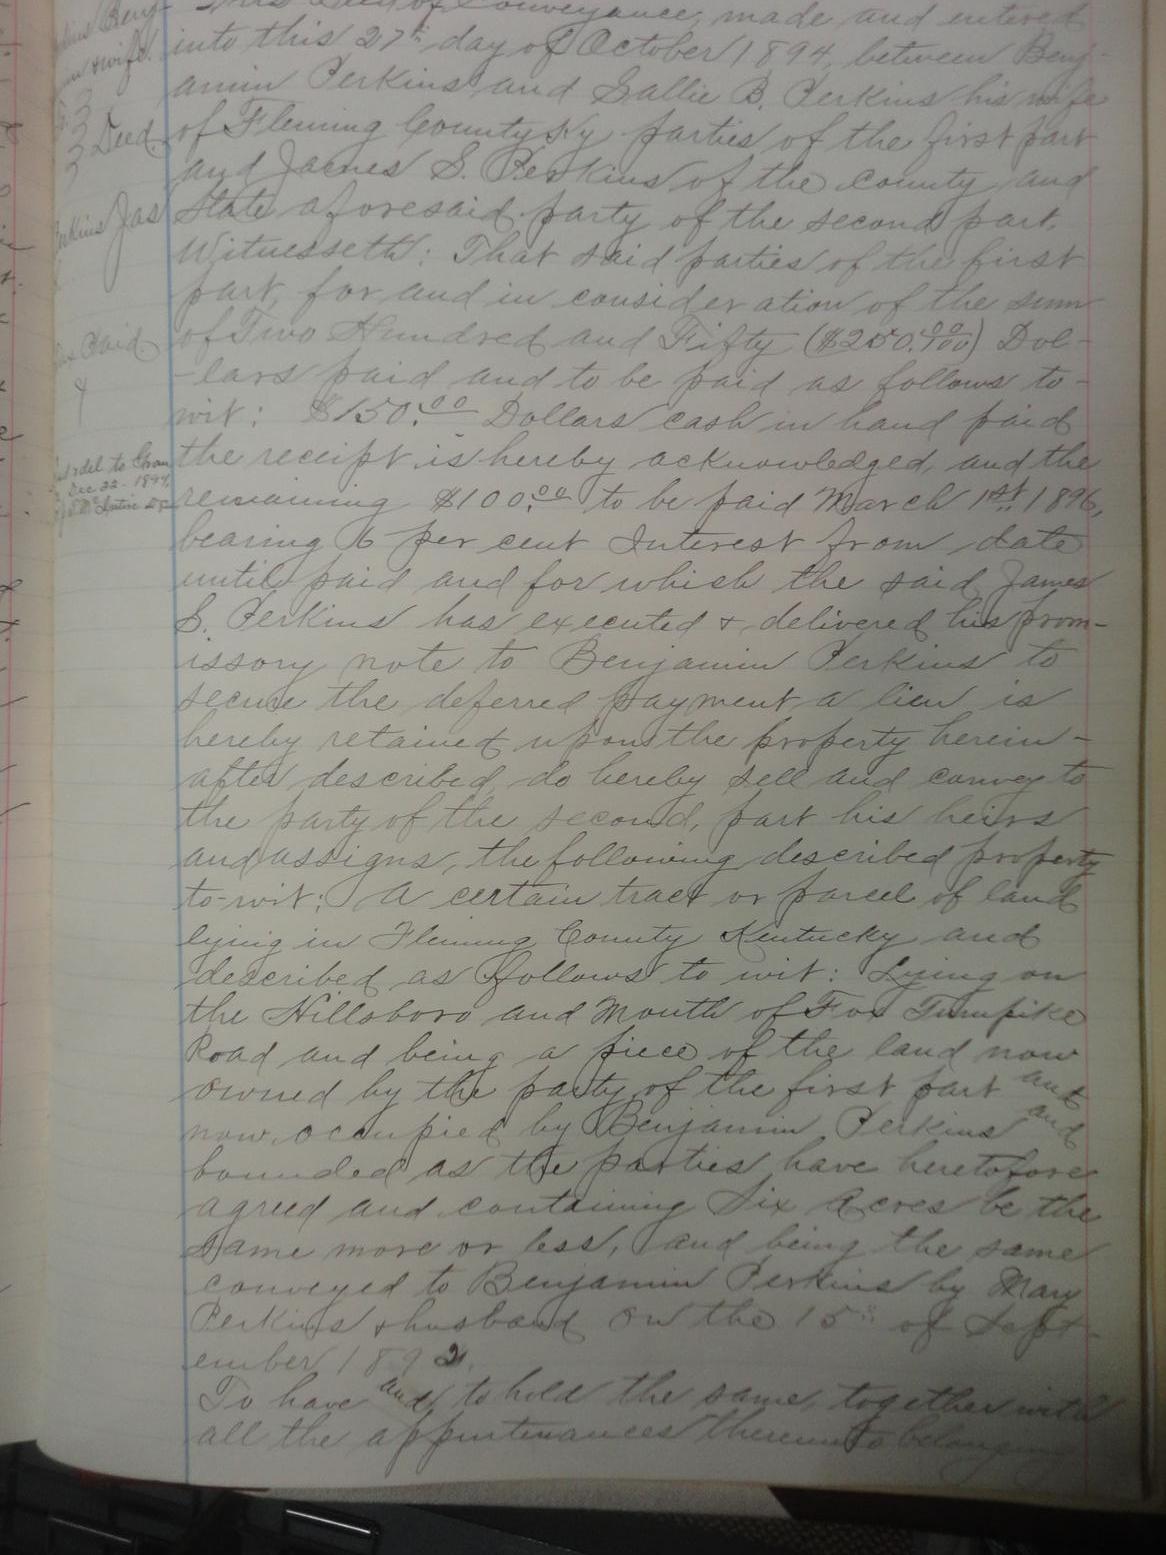 This Deed of Conveyance, made and entered
into this 27th day of October 1894, between Benj-
amin Perkins and Sallie B. Perkins his wife
of Fleming County Ky parties of the first part
and James S. Perkins of the county and
State aforesaid party of the second part,
Witnesseth: That said parties of the first
part, for and in consideration of the sum
of Two Hundred and Fifty ($250.00/100) Dol-
-lars paid and to be paid as follows to-
wit: $150.00 Dollars cash in hand paid
the receipt is hereby acknowledged, and the
remaining $100.00 to be paid March 1st 1896,
bearing 6 per cent Interest from date
until paid and for which the said James
S. Perkins has executed & delivered his prom-
issory note to Benjamin Perkins to
secure the deferred payment a lien is
hereby retained upon the property herein-
after described, do hereby sell and convey to
the party of the second, part his heirs
and assigns, the following described property
to-wit: A certain tract or parcel of land
lying in Fleming County Kentucky and
described as follows to wit: Lying on
the Hillsboro and Mouth of Fox Turnpike
Road and being a piece of the land now
owned by the party of the first part and
now occupied by Benjamin Perkins and
bounded as the parties have heretofore
agreed and containing Six Acres be the
same more or less, and being the same
conveyed to Benjamin Perkins by Mary
Perkins & husband on the 15th of Sept-
ember 1892.
To have and to hold the same, together with
all the appurtenances thereunto belonging
Benj-
& wife.
Deed.
Perkins Jas
Tax Paid
del to Gran
Dec 22 - 1894